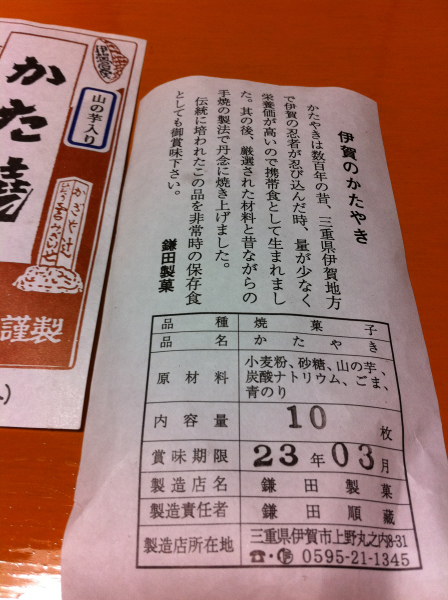 伊賀名産
かた焼
山の芋入り
かぎや辻
謹製
伊賀のかたやき
かたやきは数百年の昔、三重県伊賀地方
で伊賀の忍者が忍び込んだ時、量が少なく
栄養価が高いので携帯食として生まれまし
た。其の後、厳選された材料と昔ながらの
手焼の製法で丹念に焼き上げました。
伝統に培われたこの品を非常時の保存食
としても御賞味下さい。
鎌田製菓
品種 焼菓子
品名 かたやき
原材料 小麦粉、砂糖、山の芋、
炭酸ナトリウム、ごま、
青のり
内容量 10枚
賞味期限 23年03月
製造店名 鎌田製菓
製造責任者 鎌田順藏
製造店所在地 三重県伊賀市上野丸之内8-31
☎・Ⓕ 0595-21-1345